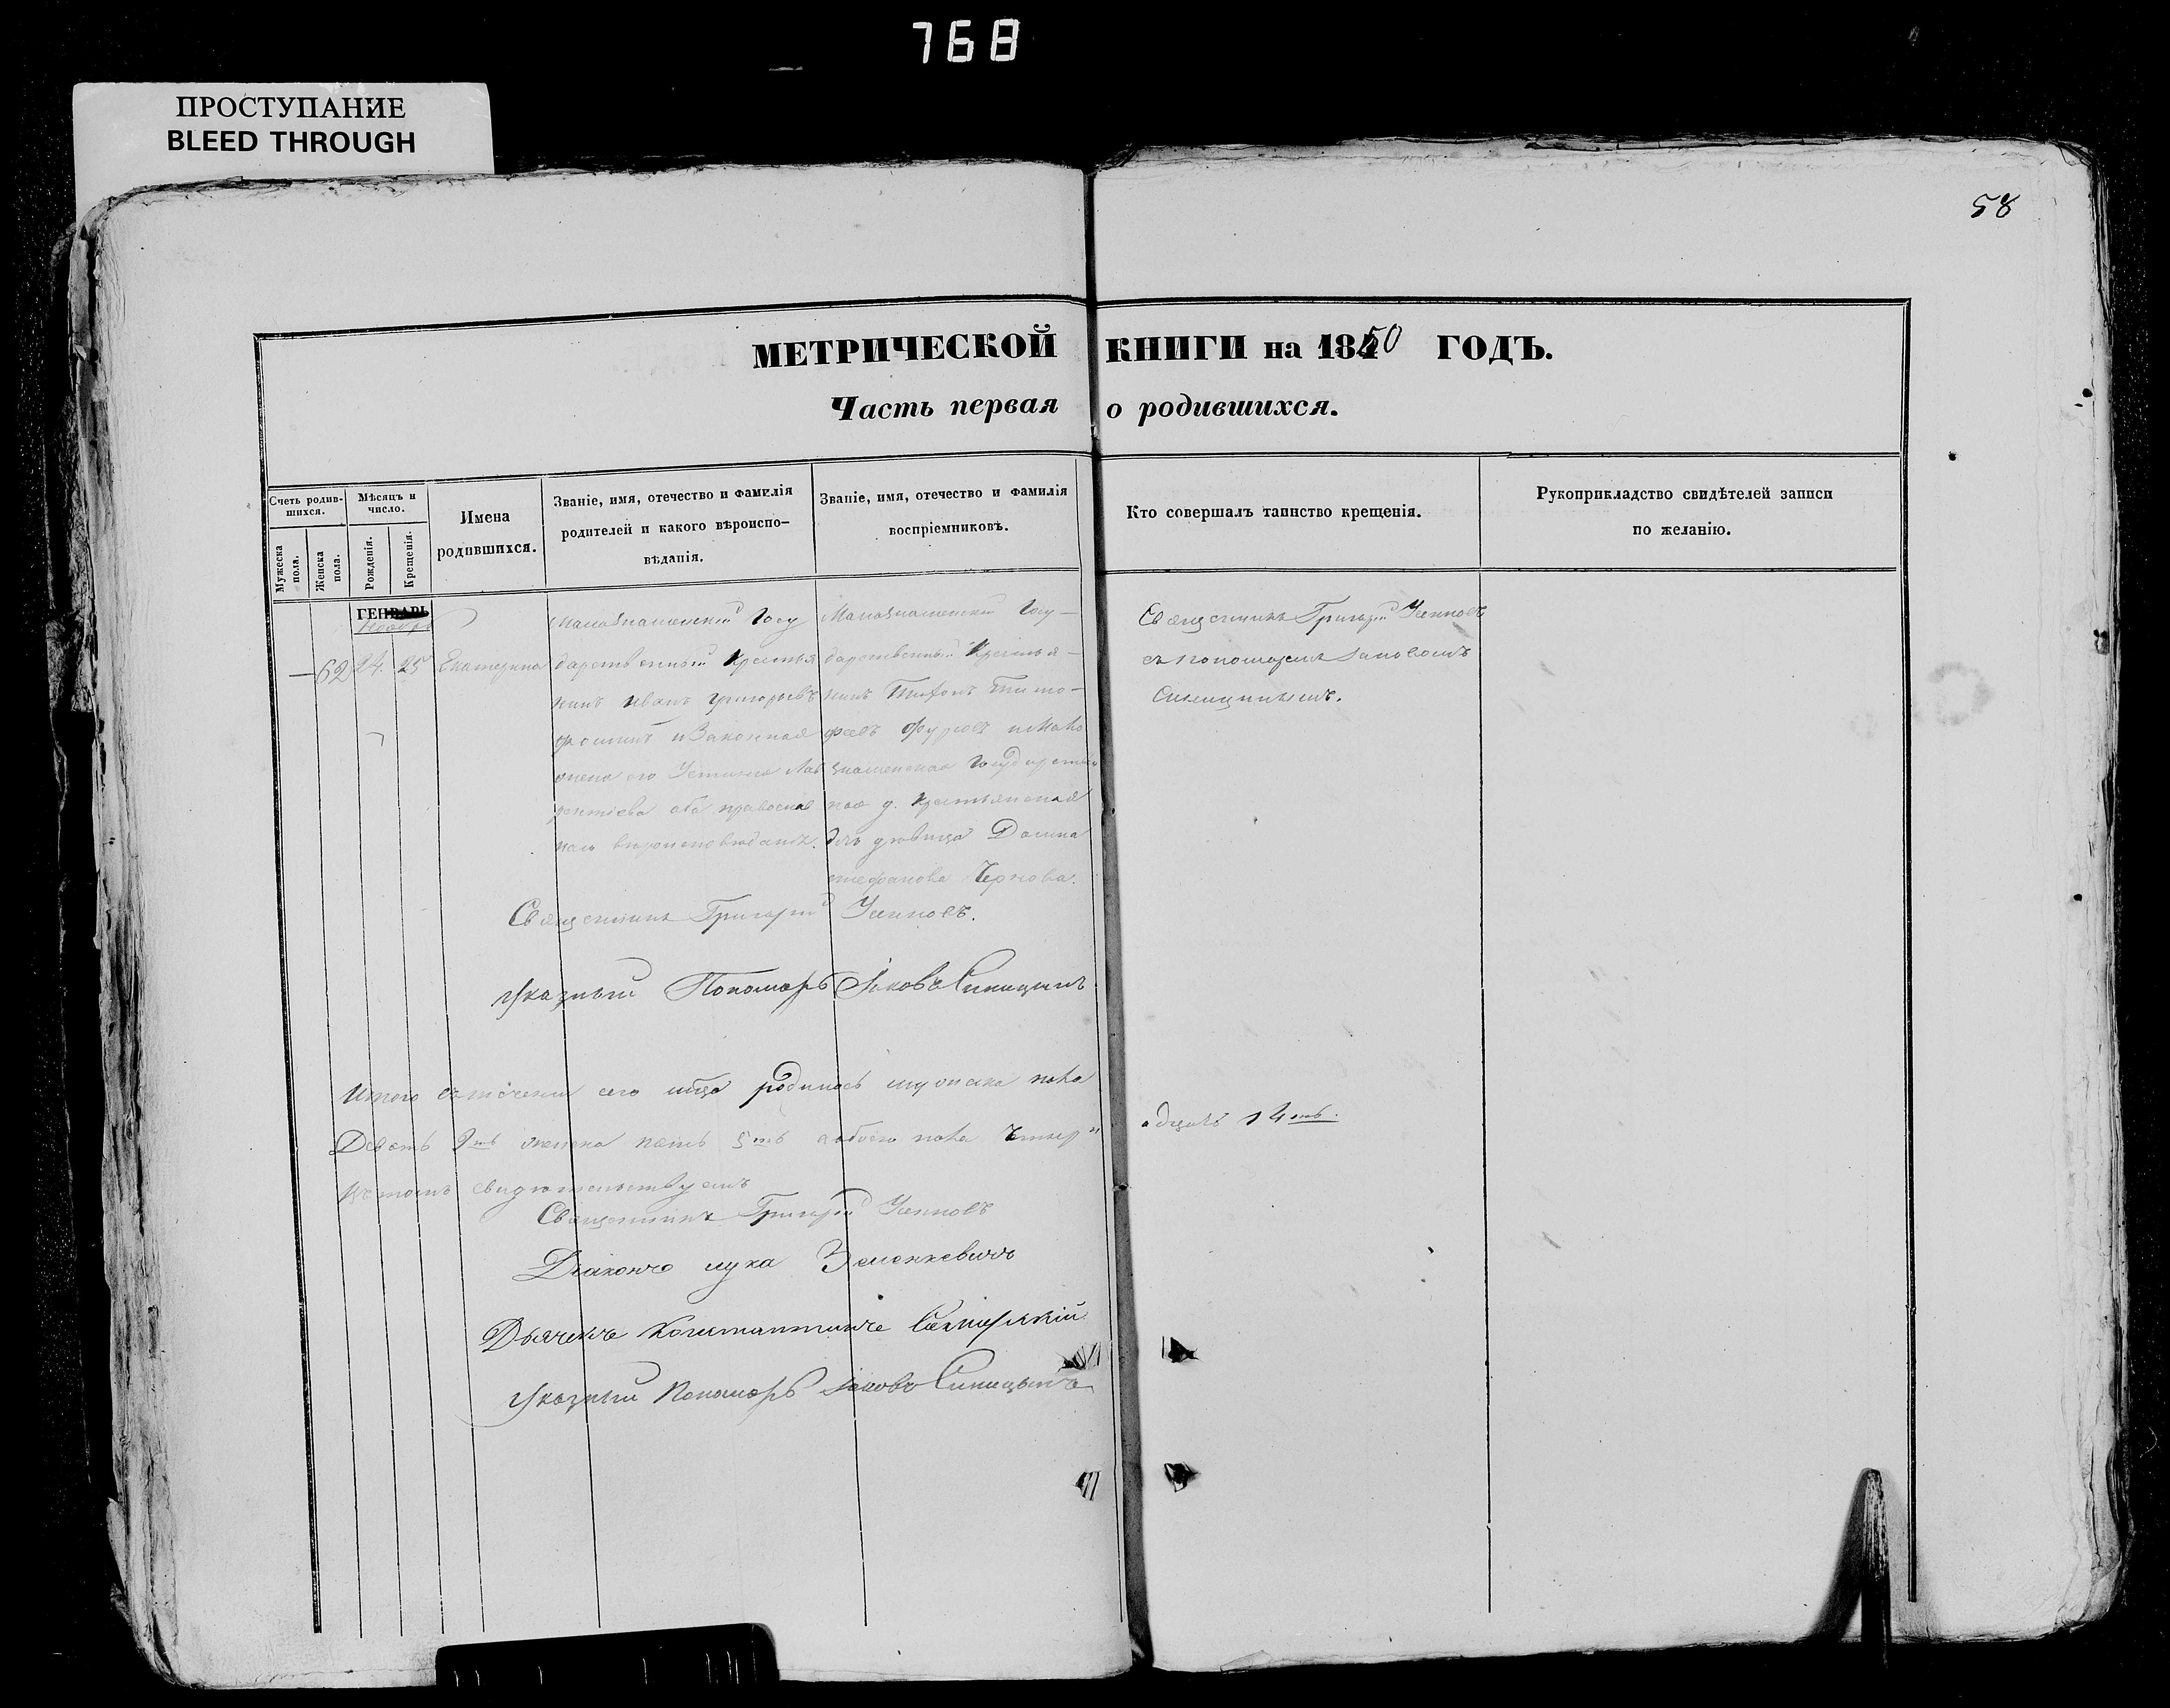 768
ПРОСТУПАНИЕ
BLEED THROUGH
58
МЕТРИЧЕСКОЙ КНИГИ на 1850 ГОДЪ.
Часть первая о родившихся.
Счетъ родив-
шихся.
Мужеска
пола.
Женска
пола.
Мѣсяцъ и
число.
Рожденія.
Крещенія.
Имена
родившихся.
Званіе, имя, отечество и фамилія
родителей и какого вѣроиспо-
вѣданія.
Званіе, имя, отечество и фамилія
воспріемниковъ.
Кто совершалъ таинство крещенія.
Рукоприкладство свидѣтелей записи
по желанію.
ГЕНВАРЬ
Ноябрь
62 24. 25 Екатерина
Малознаменскій Госу
дарственный Крестья
нинъ Иванъ Григорьевъ
и Законная
жена его Устинья Лав
рентіева оба православ
наго вѣроисповѣданія.
Малознаменскій Госу-
дарственный Крестья-
нинъ Тихонъ Тимо-
феевъ Фурсовъ и Мало
знаменская Государствен
ная Крестьянская
дочь дѣвица Домна
стефанова Чернова.
Священникъ Григорій
съ пономаремъ Іаковомъ
Синицинымъ.
Священникъ Григорій
Указный Пономарь Іаковъ Синицынъ
Итого въ теченіи сего мѣсяца родилось мужеска пола
Девять 9ть женска пять 5ть а обоего пола Четыр
адцать 14ть.
въ томъ свидѣтельствуемъ
Священникъ Григорій
Діаконъ Лука Зеленкевичъ
Дьячекъ Константинъ
Указный Пономарь Іаковъ Синицынъ